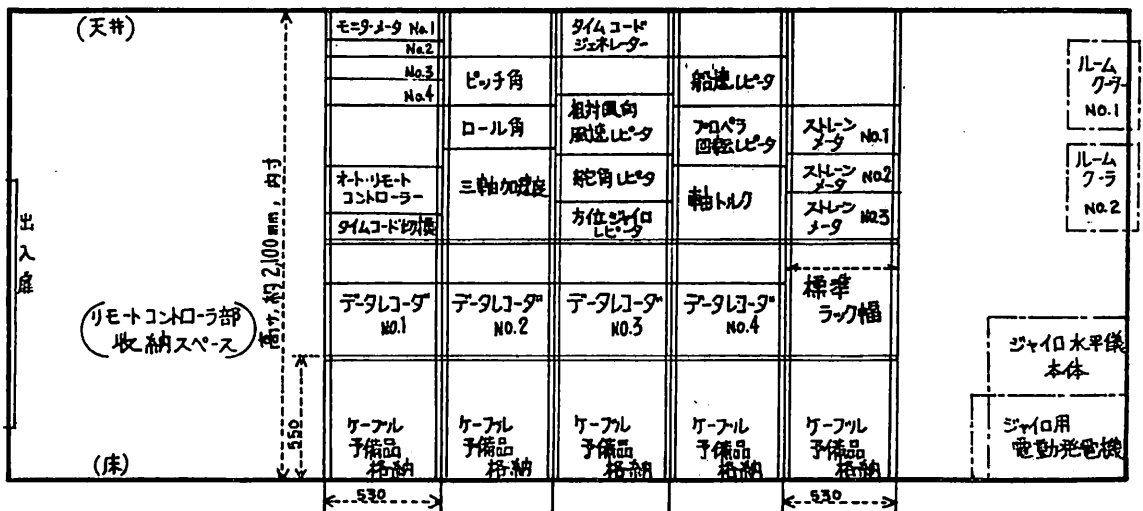 (天井)
出入扉
(リモートコントローラ部
収納スペース)
(床)
高サ,約2,100mm,内寸
550
モニタ・メータ No.1
No.2
No.3
No.4
オート・リモート
コントローラー
タイムコード切換
データレコーダ
NO.1
ケーブル
予備品
格納
530
ピッチ角
ロール角
三軸加速度
データレコーダ
NO.2
ケーブル
予備品
格納
タイムコード
ジェネレーター
相対風向
風速レピータ
舵角レピータ
方位ジャイロ
レピータ
データレコーダ
NO.3
ケーブル
予備品
格納
船速レピータ
プロペラ
回転レピータ
軸トルク
データレコーダ
NO.4
ケーブル
予備品
格納
ストレーン
メータ NO.1
ストレーン
メータ NO.2
ストレーン
メータ NO.3
標準
ラック幅
ケーブル
予備品
格納
530
ルーム
クーラー
NO.1
ルーム
クーラ
NO.2
ジャイロ水平儀
本体
ジャイロ用
電動発電機